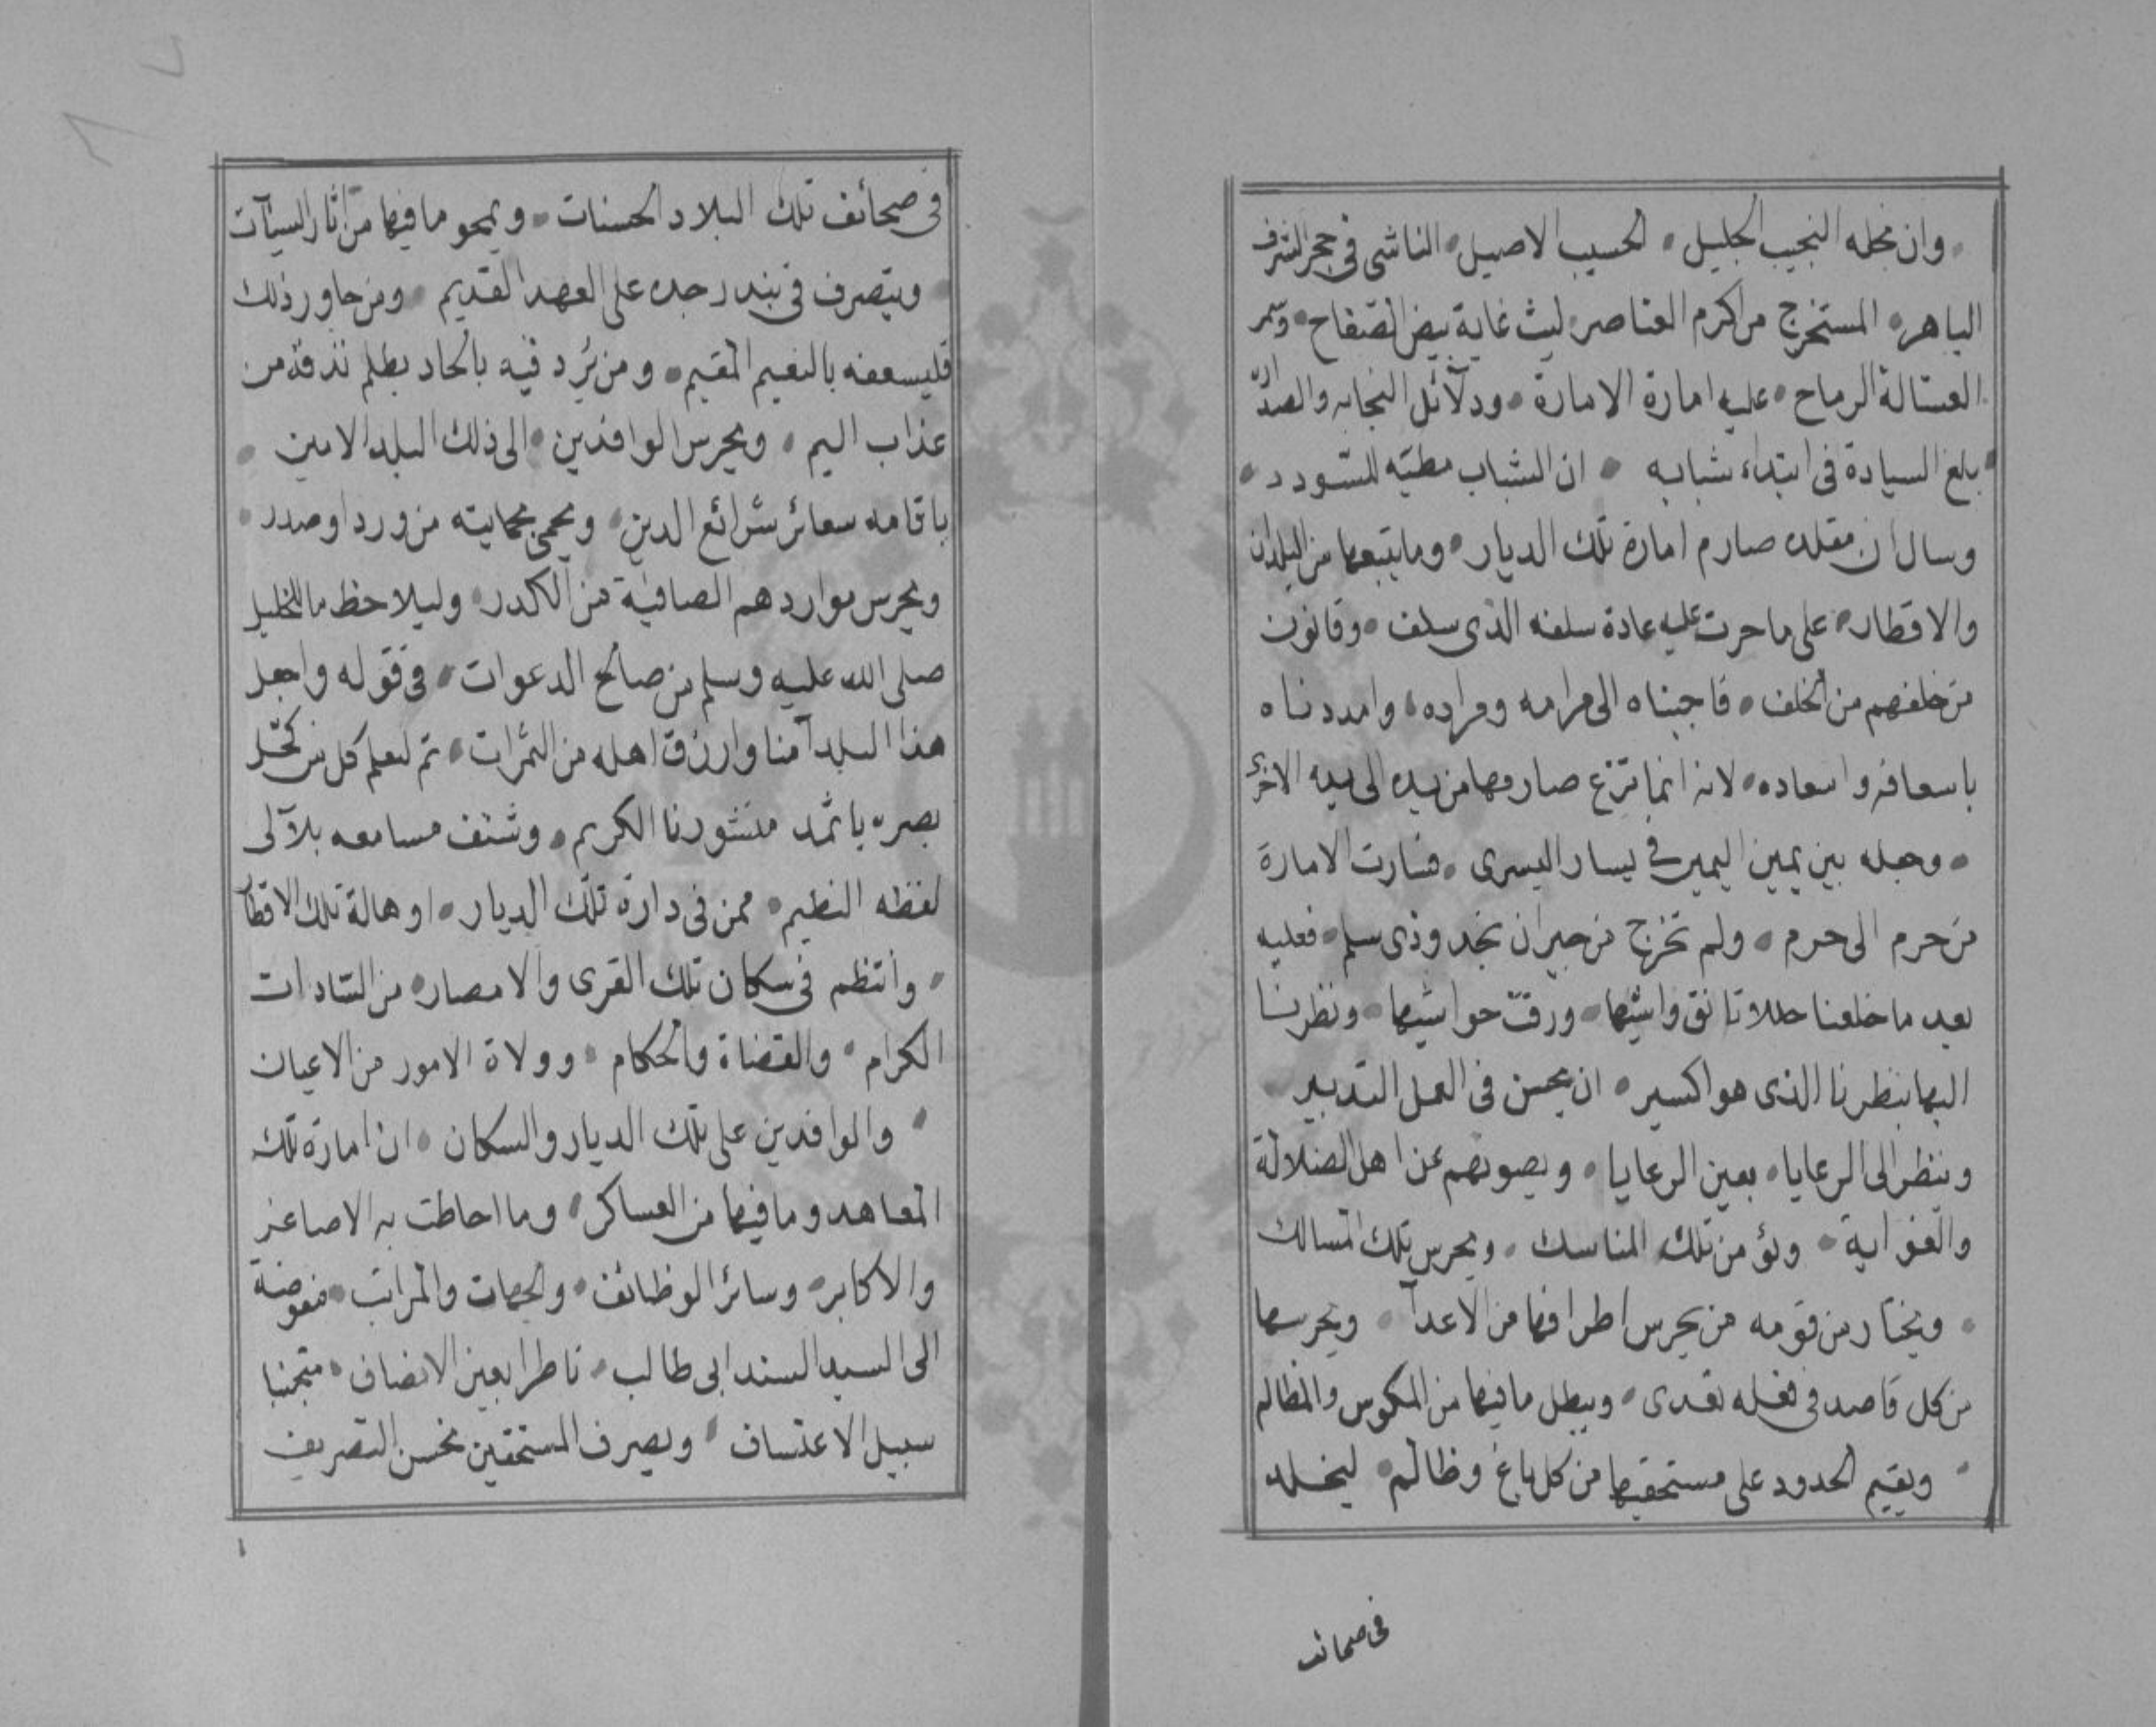 وان نجله النجيب الجليل • الحسيب الاصيل • الناشى فى حجر الشرف
الباهر • المستخرج من اكرم العناصر • ليث غابة بيض الصفاح • وسمر
العسالة الرماح • عليه امارة الامارة • ودلآئل النجابه والصدارة
• بلغ السيادة فى ابتداء شبابه • ان الشباب مطيّه للسّودد •
وسال ان نقلده صارم امارة تلك الديار • وما يتبعها من البلدان
والاقطار • على ما جرت عليه عادة سلفه الذى سلف • وقانون
من خلفهم من الخلف • فاجبناه الى مرامه ومراده • وامددناه
باسعافه واسعاده • لانه انما نزع صارمها من يده الى يده الاخرى
• وجعله بين يمين اليمين فى يسار اليسرى • فسارت الامارة
من حرم الى حرم • ولم تخرج من جيران نجد وذى سلم • فعليه
بعد ما خلعنا حللا تانق واشيها • ورقت حواشيها • ونظرنا
اليها بنظرنا الذى هو اكسير • ان يحسن فى العمل التدبير
وينظر الى الرعايا • بعين الرعايا • ويصونهم عن اهل الضلالة
والغواية • ويؤمن تلك المناسك • ويحرس تلك المسالك
• ويختار من قومه من يحرس اطرافها من الاعدآ • ويحرسها
من كل قاصد فى فعله تعدى • ويبطل ما فيها من المكوس والمظالم
• ويقيم الحدود على مستحقيها من كل باغ وظالم • ليخلد
فى صحائف
فى صحائف تلك البلاد الحسنات • ويمحو ما فيها من آثار السيآت
• ويتصرف فى بندر جده على العهد القديم • ومن جاور ذلك
فليسعفه بالنعيم المقيم • ومن يُرد فيه بالحاد بظلم نذقه من
عذاب اليم • ويحرس الوافدين • الى ذلك البلد الامين •
باقامه شعائر شرائع الدين • ويحمى بحمايته من ورد او صدر •
ويحرس مواردهم الصافية من الكدر • وليلاحظ ما للخليل
صلى الله عليه وسلم من صالح الدعوات • فى قوله واجعل
هذا البلد آمنا وارزق اهله من الثمرات • ثم ليعلم كل من كحّل
بصره باثمد منشورنا الكريم • وشنف مسامعه بلآلى
لفظه النظيم • ممن فى دارة تلك الديار • او هالة تلك الاقطار
• وانتظم فى سكان تلك القرى والامصار • من السّادات
الكرام • والقضاة والحكام • وولاة الامور من الاعيان
• والوافدين على تلك الديار والسكان • ان امارة تلك
المعاهد وما فيها من العساكر • وما احاطت به الاصاغر
والاكابر • وسائر الوظائف • والجهات والمراتب • مفوضة
الى السيد السند ابى طالب • ناظرا بعين الانصاف • متجنبا
سبيل الاعتساف • ويصرف المستحقين بحسن التصريف